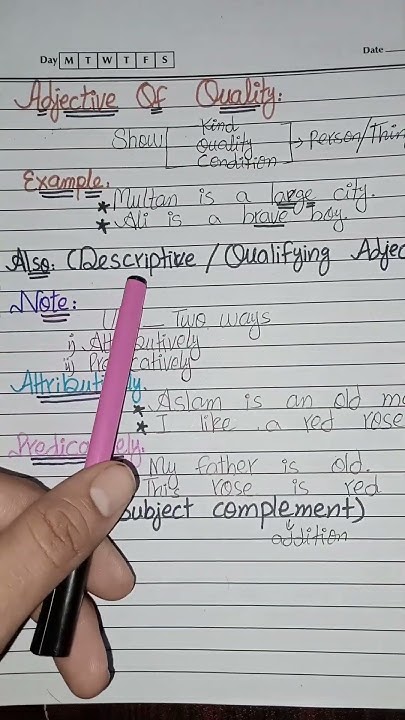 Day M T W T F S
Date
Adjective Of Quality:
Show Kind
Quality → Person/Thin
Condition
Example.
* Multan is a large city.
* Ali is a brave boy.
Also: (Descriptive / Qualifying Adjec
Note:
Two ways
i)
ii)
Attributively.
* Aslam is an old m
* I like a red rose
Predicatively.
My father is old.
This rose is red
Subject complement)
addition